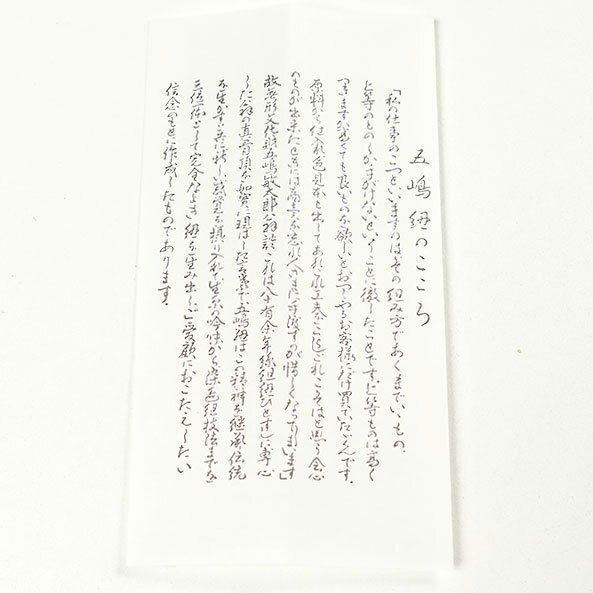 五嶋紐のこころ
「私の仕事のこつといいますのは、その組み方であくまでいいもの、
上等のものしかまげないということに徹したことです。上等ものは高く
つきますが高くても良いものを欲しいとおっしゃるお客様にだけ買っていただくんです。
原料から仕入れ色見本も出してあれこれ工夫をこらしこれこそはと思う会心
のものが出来たときには商売を忘れ人さまに手渡すのが惜しくなってしまいます」
故無形文化財五嶋敏太郎翁談 これは八十有余年組紐ひとすじに専心
した翁の真骨頂を如実に現はした言葉で五嶋紐はこの精神を継承し伝統
を生かす共に新しい感覚を採り入れ、生糸の吟味から染色組技法までを
三位一体として完全なよき紐を生み出しご愛顧におこたえしたい
信念のもとに作成したものであります。